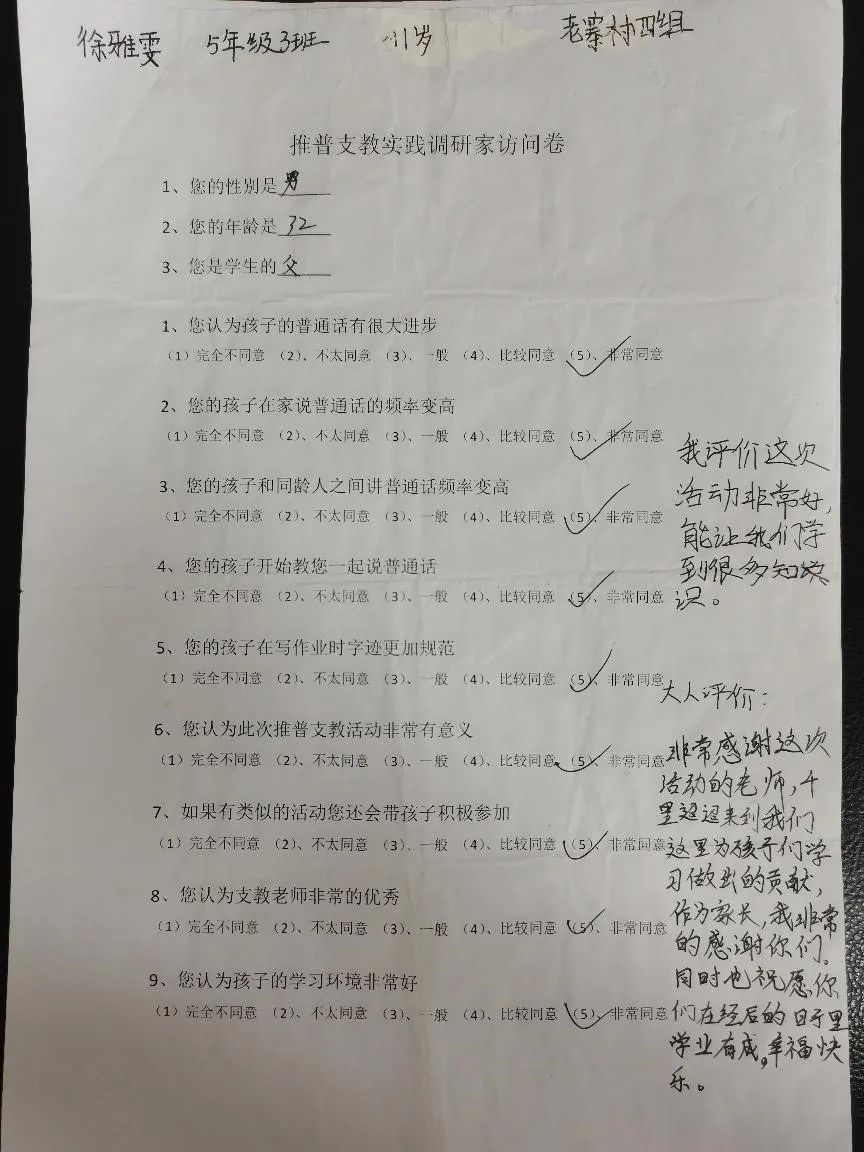 徐雅雯 5年级3班 11岁 老寨村四组
推普支教实践调研家访问卷
1、您的性别是男
2、您的年龄是32
3、您是学生的父
1、您认为孩子的普通话有很大进步
（1）完全不同意 （2）、不太同意 （3）、一般 （4）、比较同意 （5）、非常同意
2、您的孩子在家说普通话的频率变高
（1）完全不同意 （2）、不太同意 （3）、一般 （4）、比较同意 （5）、非常同意
3、您的孩子和同龄人之间讲普通话频率变高
（1）完全不同意 （2）、不太同意 （3）、一般 （4）、比较同意 （5）、非常同意
4、您的孩子开始教您一起说普通话
（1）完全不同意 （2）、不太同意 （3）、一般 （4）、比较同意 （5）、非常同意
5、您的孩子在写作业时字迹更加规范
（1）完全不同意 （2）、不太同意 （3）、一般 （4）、比较同意 （5）、非常同意
6、您认为此次推普支教活动非常有意义
（1）完全不同意 （2）、不太同意 （3）、一般 （4）、比较同意 （5）、非常同意
7、如果有类似的活动您还会带孩子积极参加
（1）完全不同意 （2）、不太同意 （3）、一般 （4）、比较同意 （5）、非常同意
8、您认为支教老师非常的优秀
（1）完全不同意 （2）、不太同意 （3）、一般 （4）、比较同意 （5）、非常同意
9、您认为孩子的学习环境非常好
（1）完全不同意 （2）、不太同意 （3）、一般 （4）、比较同意 （5）、非常同意
我评价这次
活动非常好，
能让我们学
到很多知
识。
大人评价：
非常感谢这次
活动的老师，千
里迢迢来到我们
这里为孩子们学
习做出的贡献，
作为家长，我非常
的感谢你们。
同时也祝愿你
们在经后的日子里
学业有成，幸福快
乐。